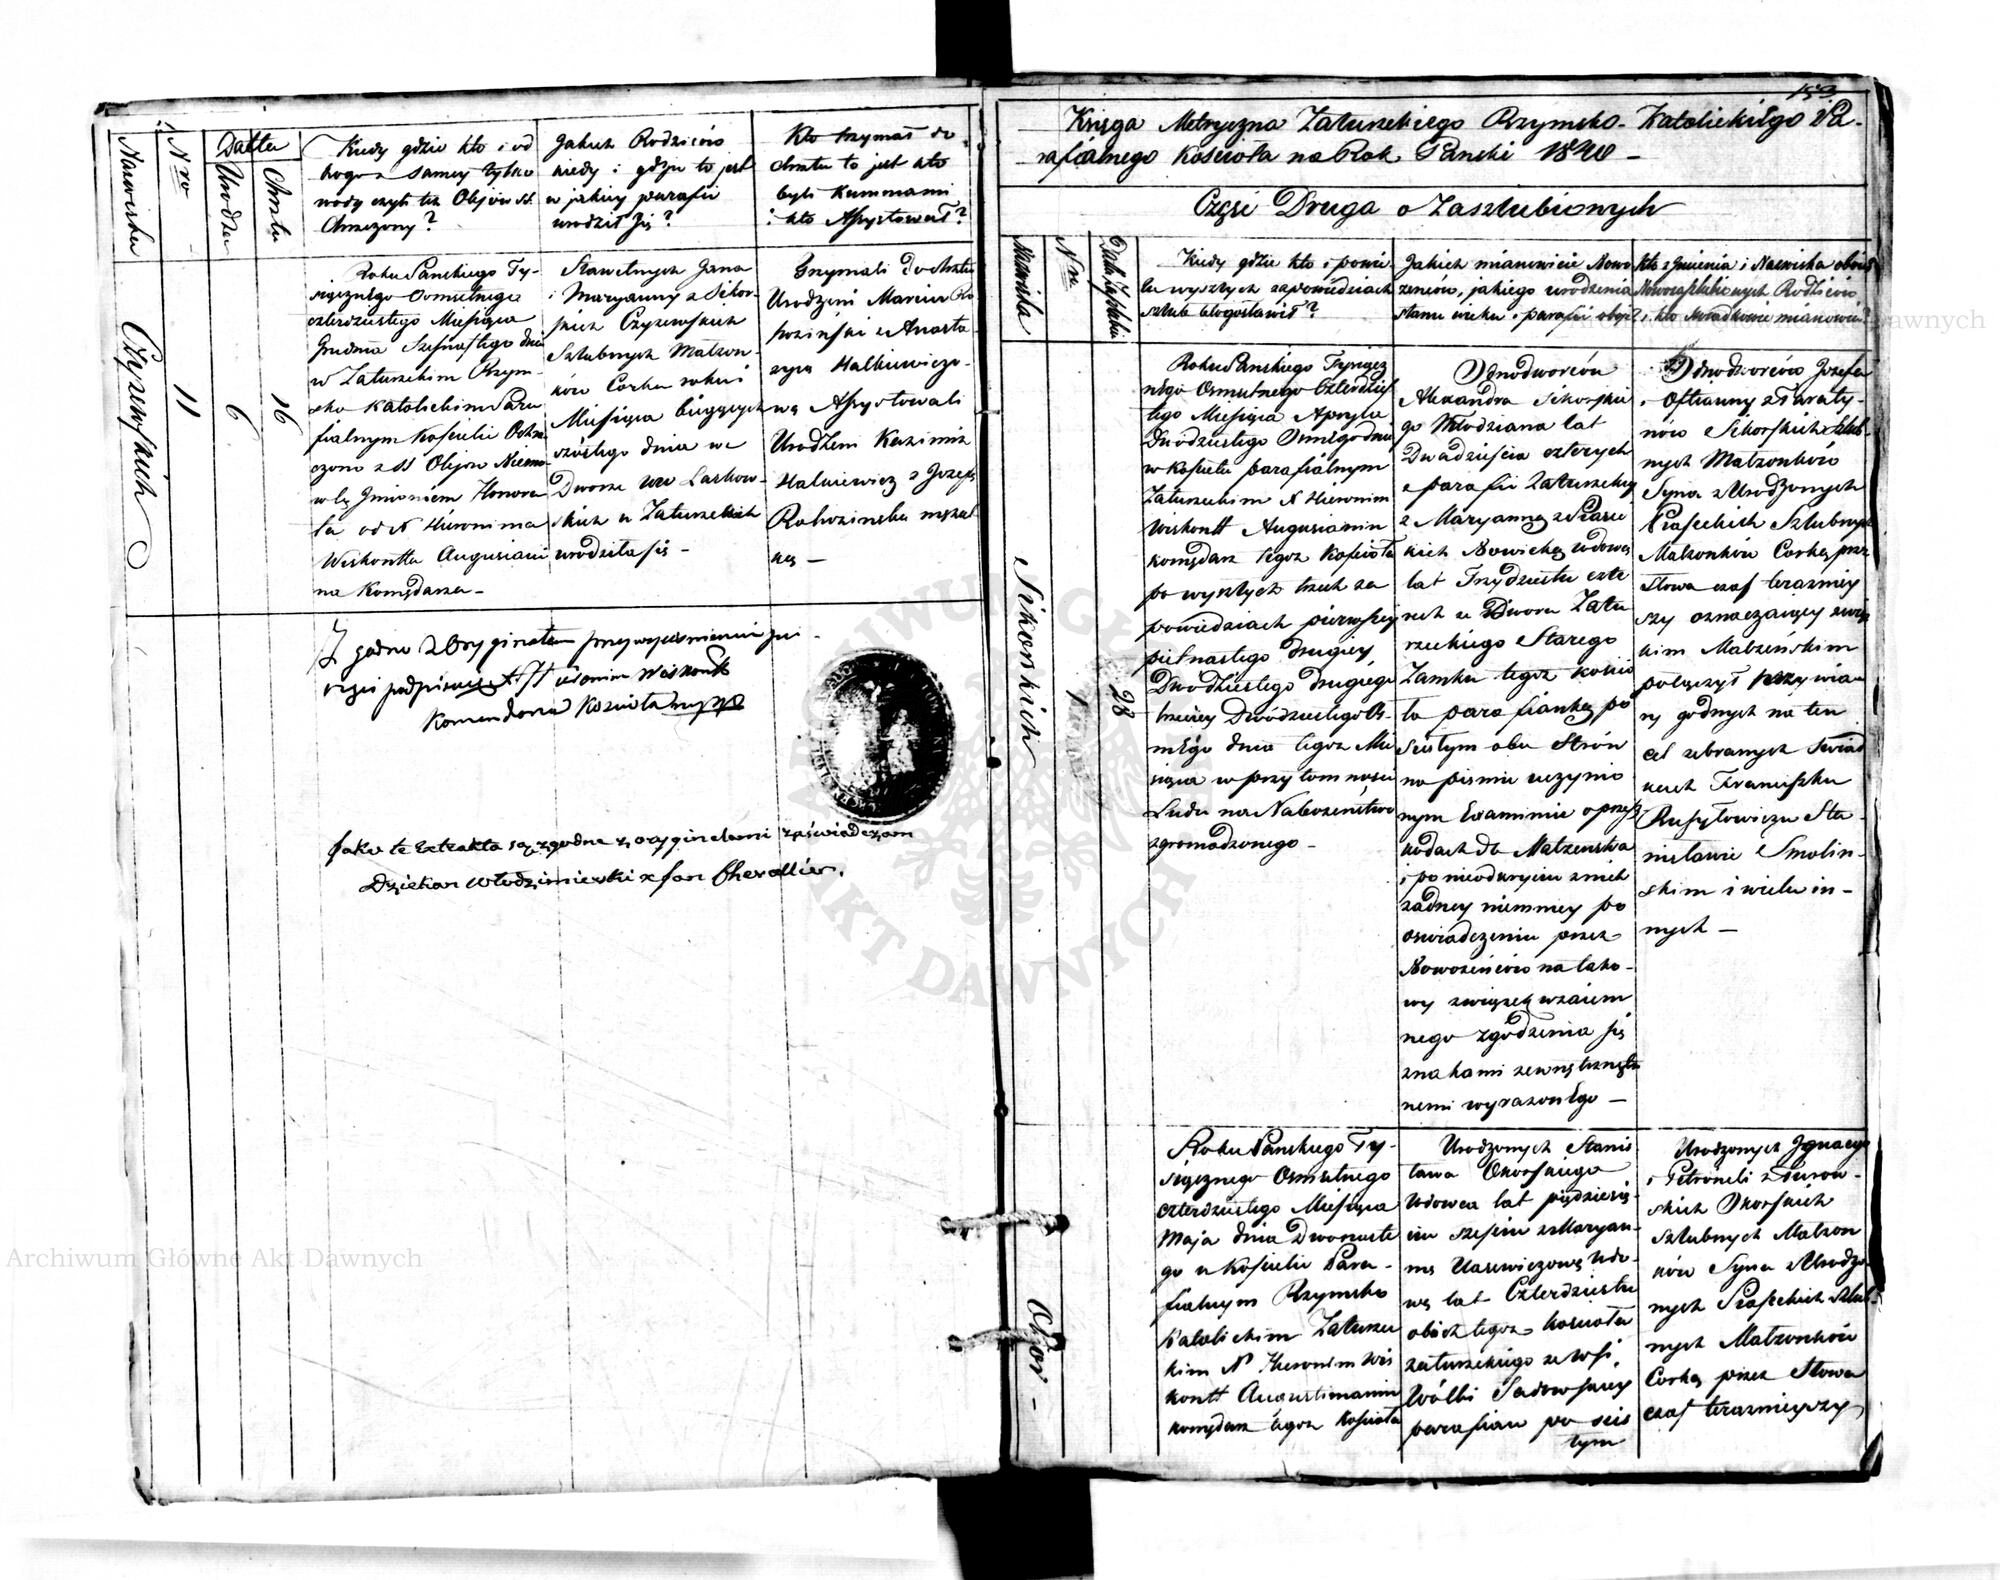 Nazwiska
Nro
Datta
Urodzen
Chrztu
Kiedy gdzie kto i od
kogo z samey tylko
wody czyli tez Olejów SS.
Chrzczony?
Jakich Rodziców
kiedy i gdzie to jest
w jakiey parafii
urodził się?
Kto trzymał do
chrztu to jest kto
byli Kummami
i kto Assystował?
Czyzewskich
11
6
16
Roku Panskiego Ty-
siącznego Osmsetnego
czterdziestego Miesiąca
Grudnia Szesnastego dnia
w Zaturzekim Rzym-
sko Katolickim Para
fialnym Kościele Ochr
czono z SS Olejow Niemo
wlę Jmieniem Honora
ta od X Hieronima
Wiskontta Augusiani
na Komędarza -
Sławetnych Jana
i Maryanny z Sikor-
skich Czyzewskich
Szlubnych Małzon-
ków Corka roku i
Miesiąca biezących
szóstego dnia we
Dworze WW Laskow-
skich w Zaturzekach
urodziła się -
Trzymali do chrztu
Urodzeni Marcin Ro
hoziński z Anasta
zyą Halkiewiczo-
wą Assystowali
Urodzeni Kazimirz
Halkiewicz z Jozefą
Rohozinską męzat
ką -
Zgodno z Oryginałem przy wyciśnieniu pie-
częci podpisuię X H Hieronim Wiskontt
Komendarz Kościoła
Jako te Extrakta są zgodne z oryginałami zaświadczam
Dziekan Włodzimierski x Jan Chevallier.
153
Księga Metryczna Zaturzekiego Rzymsko-Katolickiego Pa-
rafialnego Kościoła na Rok Panski 1840 -
Częsc Druga o Zaszlubionych
Nazwiska
Nro
Data Zaszlubin
Kiedy gdzie kto i po wie
lu wyszłych zapowiedziach
szlub błogosławił?
Jakich mianowicie Nowo
zencow, jakiego urodzenia
stanu wieku i parafii oboje?
Kto z Jmienia i Nazwiska oboich
Nowozaszlubionych Rodzicow
i kto swiadkowie mianowic?
Sikorskich
28
Roku Panskiego Tysiącz
nego Osmsetnego Czterdzies
tego Miesiąca Apryla
Dwódziestego Osmego dnia
w Kościele parafialnym
Zaturzeckim X Hieronim
Wiskontt Augusianin
komędarz tegoz Kościoła
po wyszłych trzech za
powiedziach pierwszey
piętnastego drugiey
Dwódziestego drugiego
trzeciey Dwódziestego Os-
mego dnia tegoz Mie
siąca w przytomnosci
Ludu na Nabozeństwo
zgromadzonego -
Odnodworców
Alexandra Sikorskie
go Młodziana lat
Dwadzieścia czterych
z parafii Zaturzekiey
z Maryanną z Piasec
kich Nowicką wdową
lat Trzydziestu czte
rech z Dworu Zatu
rzeckiego Starego
Zamku tegoz koscio
ła parafianką po
scisłym obu Strón
na pismie uczynio
nym Examinie o przesz
kodach do Małzenstwa
i po nieodkryciu z nich
zadney niemniey po
oswiadczeniu przez
Nowozeńców na tako-
wy związek wzaiem
nego zgodzenia się
znakami zewnętrznęła
nemi wyrazonego -
Odnodworców Jozefa
i Oftianny z Taraty-
nów Sikorskich szlub-
nych Małzonków
Syna z Urodzonych
Piaseckich Szlubnych
Małzonków Corką prze
Słowa czas teraznięy
szy oznaczaiący związ
kiem Małzeńskim
połączył przy wia
ry godnych na ten
cel zebranych świad
kach Franciszku
Rusyłowiczu Sta-
nisławie Smolin-
skim i wielu in-
nych -
Okor-
Roku Panskiego Ty-
siącznego Osmsetnego
czterdziestego Miesiąca
Maja dnia Dwonaste
go w Kościele Para-
fialnym Rzymsko
Katolickim Zaturze
kim X Hieronim Wis
kontt Augustinianin
komędarz tegoz Kościoła
Urodzonych Stanis
ława Okorskiego
Wdowca lat piędziesię-
ciu sześciu z Maryan-
ną Uasewiczową wdo-
wą lat Czterdziestu
obóch tegoz kościoła
zaturzekiego ze Wsi
Wólki Sadowskiey
parafian po scis
łym
Urodzonych Jgnacego
i Petroneli z Turow-
skich Okorskich
szlubnych Małzon
ków Syna z Urodzo-
nych Piaseckich szlub-
nych Małzonków
Corką przez Słowa
czas teraznieyszy
Archiwum Główne Akt Dawnych